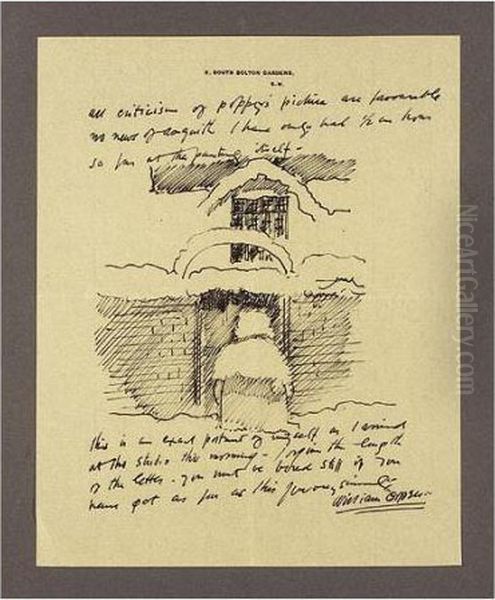 8, SOUTH BOLTON GARDENS,
S.W.
all criticism of poppy's picture are favourable
no news of Asquith I have only had ½ an hour
so far at the painting itself -
this is an exact portrait of myself as I arrived
at the studio this morning - forgive the length
of the letter - you must be bored stiff if you
have got as far as this
William Orpen
NiceArtGallery.com